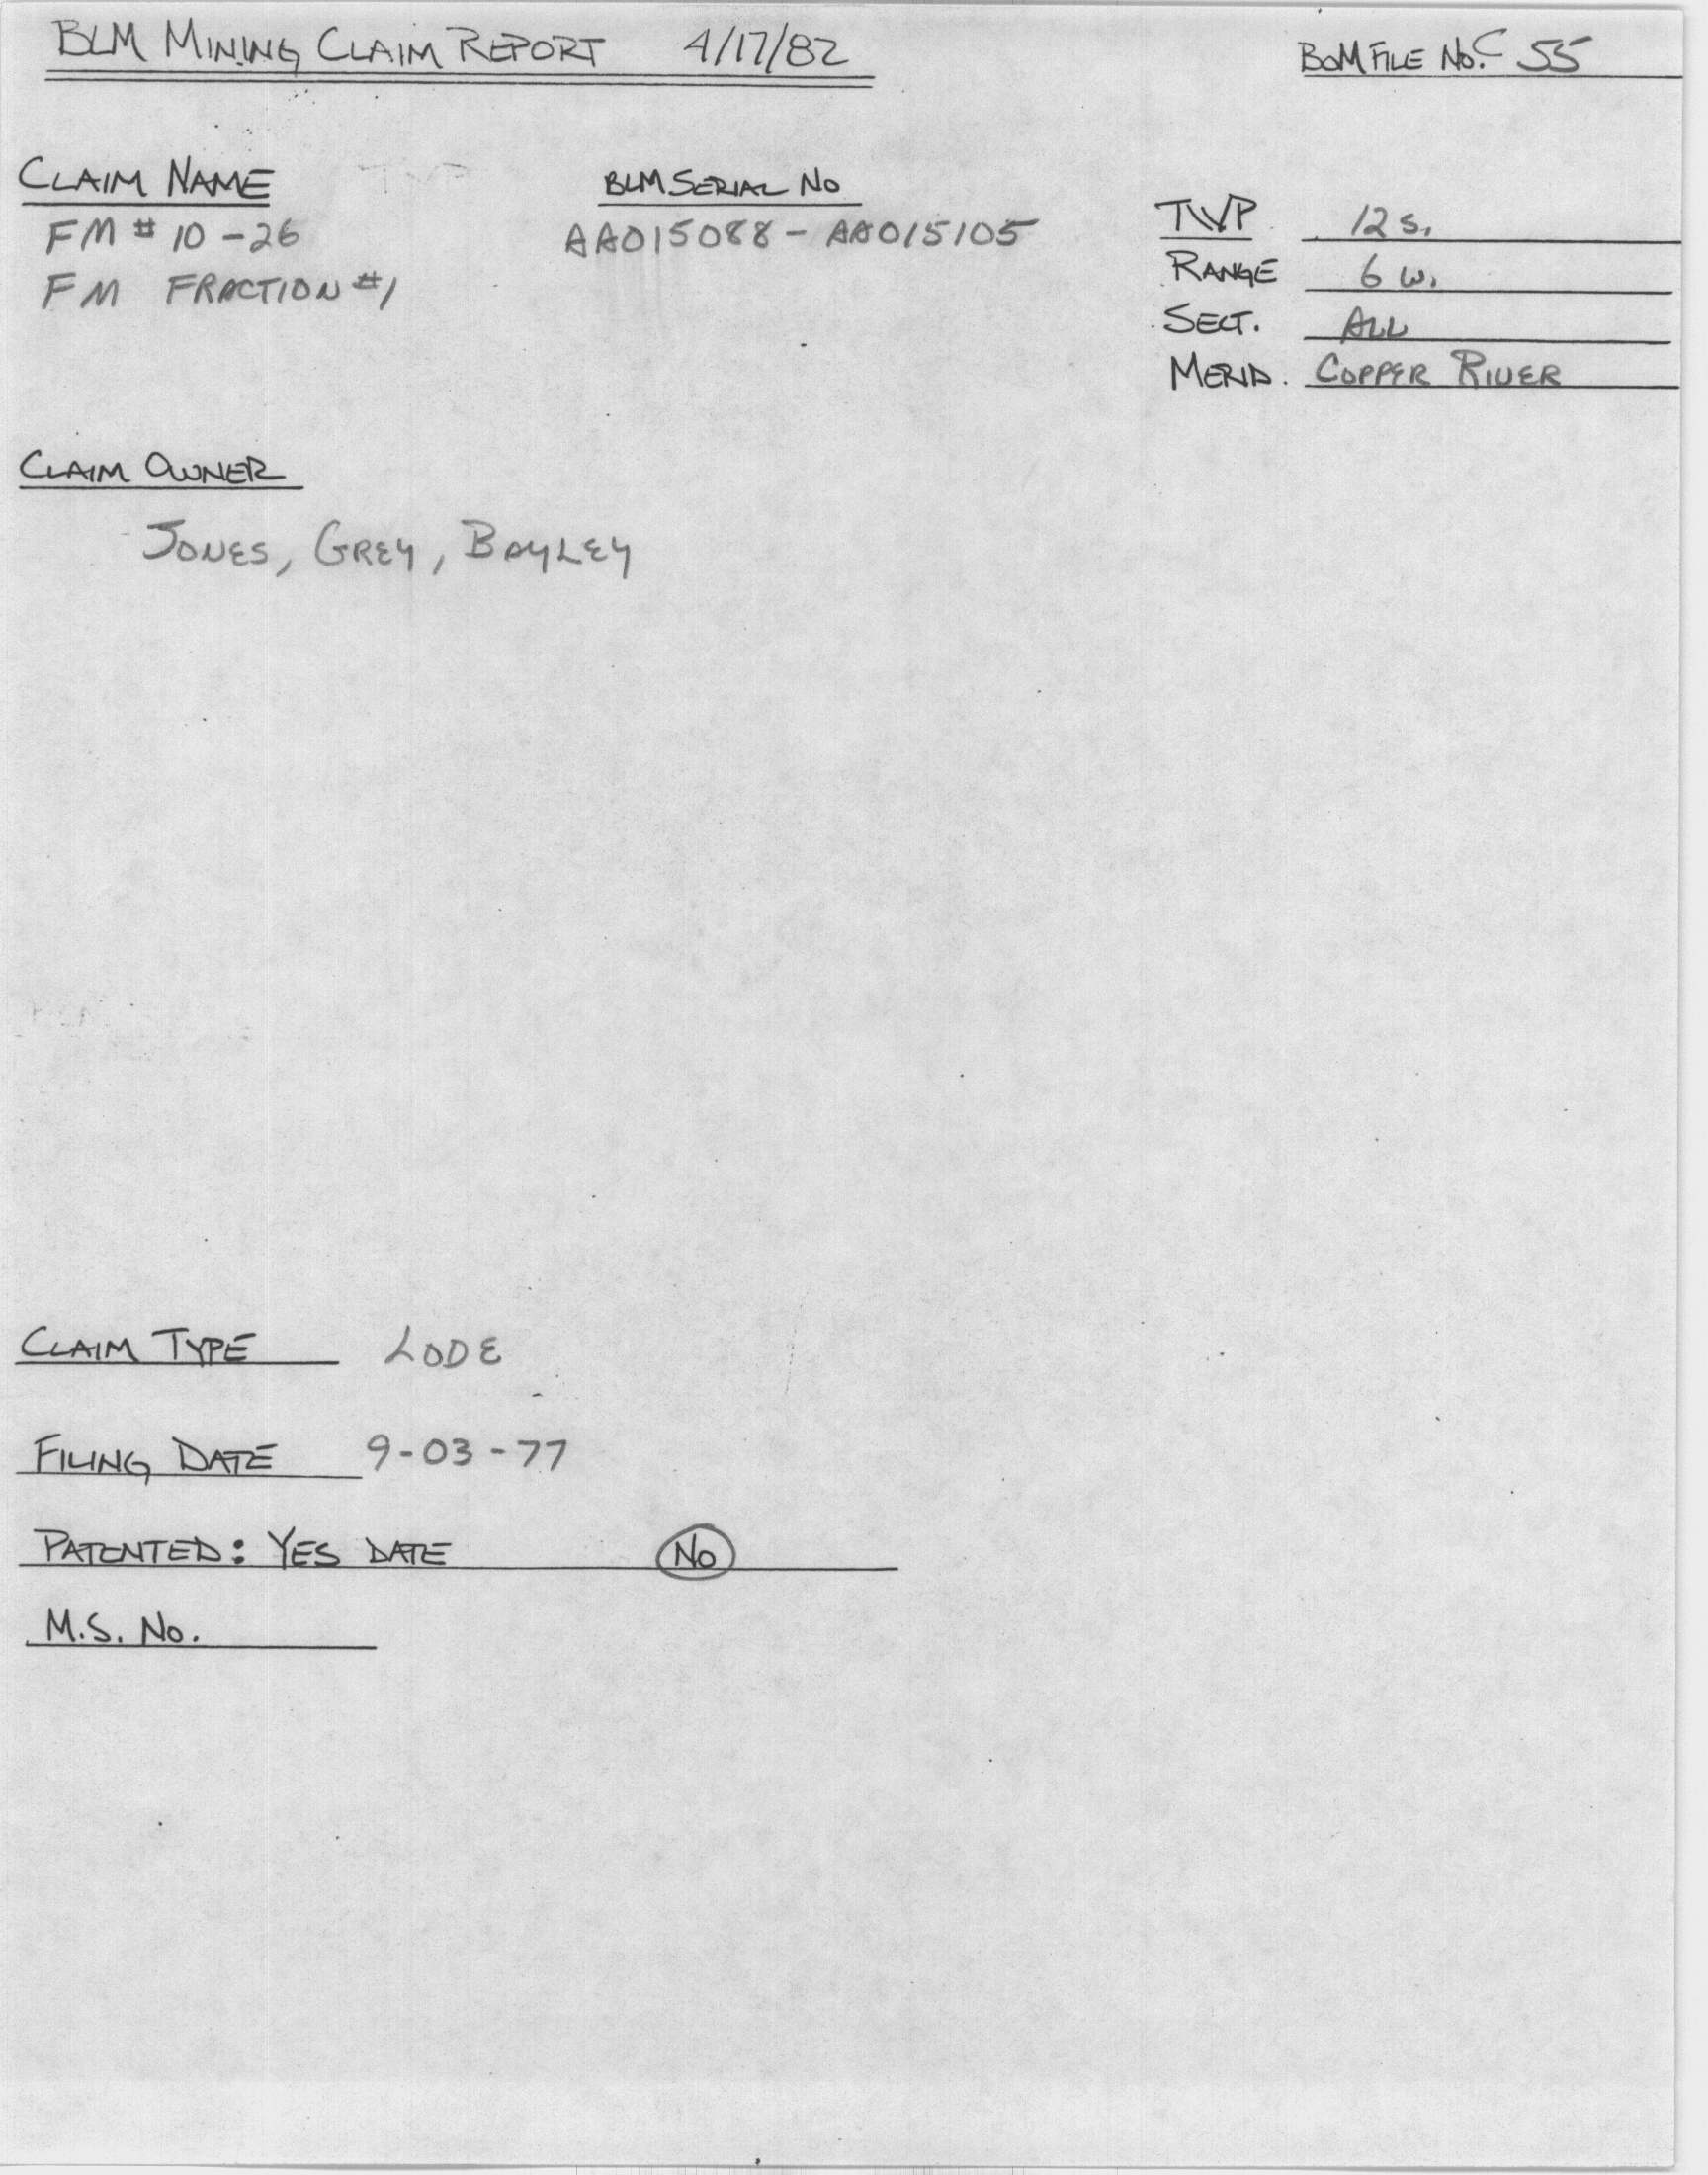 BLM MINING CLAIM REPORT 4/17/82
BOM FILE NO. C 55
CLAIM NAME
BLM SERIAL NO
FM # 10 - 26
AA015088 - AA015105
FM FRACTION #1
TWP 12 S.
RANGE 6 W.
SECT. ALL
MERID. COPPER RIVER
CLAIM OWNER
JONES, GREY, BAYLEY
CLAIM TYPE LODE
FILING DATE 9-03-77
PATENTED: YES DATE NO
M.S. NO.